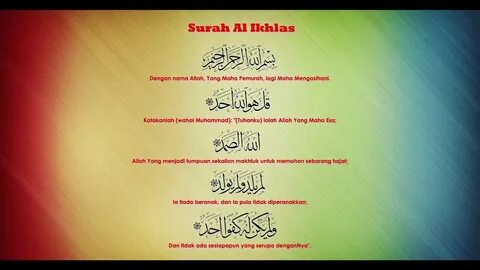 Surah Al Ikhlas
بِسْمِ اللَّهِ الرَّحْمَٰنِ الرَّحِيمِ
Dengan nama Allah, Yang Maha Pemurah, lagi Maha Mengasihani.
قُلْ هُوَ اللَّهُ أَحَدٌ
Katakanlah (wahai Muhammad): "(Tuhanku) ialah Allah Yang Maha Esa;
اللَّهُ الصَّمَدُ
Allah Yang menjadi tumpuan sekalian makhluk untuk memohon sebarang hajat;
لَمْ يَلِدْ وَلَمْ يُولَدْ
Ia tiada beranak, dan Ia pula tidak diperanakkan;
وَلَمْ يَكُن لَّهُ كُفُوًا أَحَدٌ
Dan tidak ada sesiapapun yang serupa denganNya".